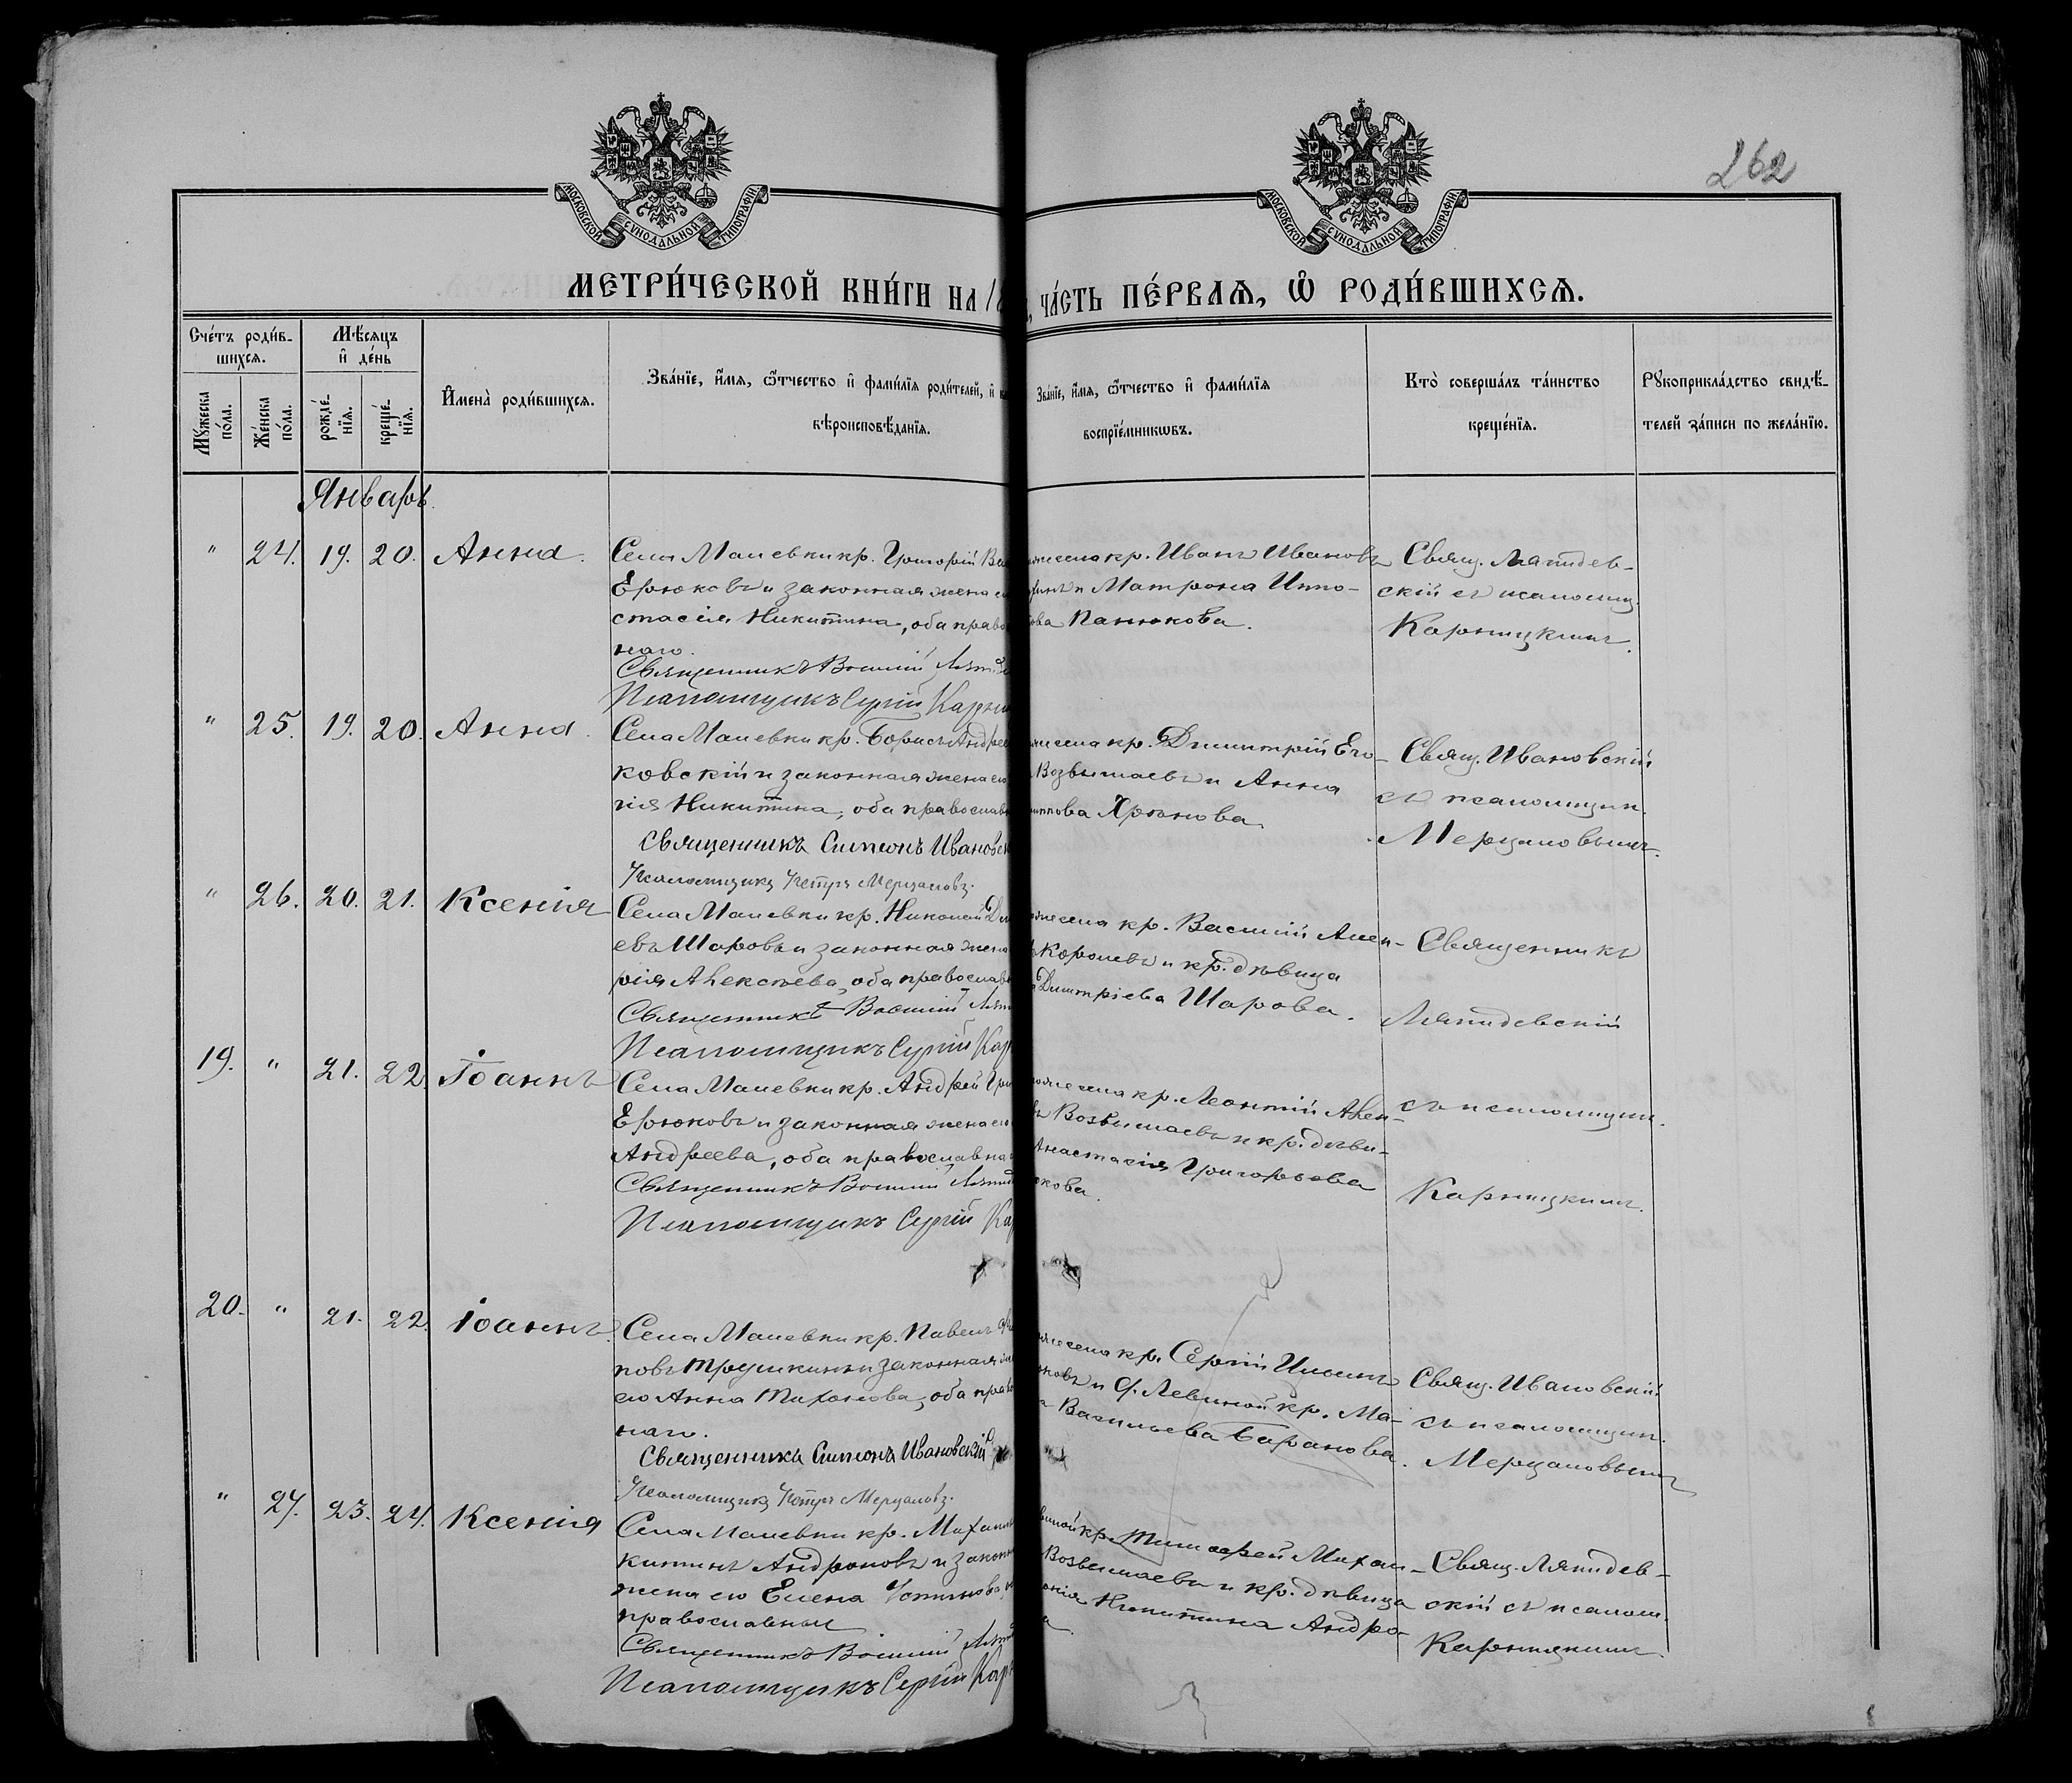 262
МОСКОВСКОЙ СѴНОДАЛЬНОЙ ТИПОГРАФІИ
МОСКОВСКОЙ СѴНОДАЛЬНОЙ ТИПОГРАФІИ
МЕТРИ́ЧЕСКОЙ КНИ́ГИ НА 18
ЧА́СТЬ ПЕ́РВАѦ, Ѡ҆ РОДИ́ВШИХСѦ.
Сче́тъ роди́в-
шихсѧ.
Мѣ́сѧцъ
и҆ де́нь
Мꙋ́жеска
по́ла.
Же́нска
по́ла.
рожде́-
нїѧ.
креще́-
нїѧ.
И҆мена̀ роди́вшихсѧ.
Зва́нїе, и҆́мѧ, ѻ҆́тчество и҆ фами́лїѧ роди́телей, и҆
вѣроисповѣ́данїѧ.
Зва́нїе, и҆́мѧ, ѻ҆́тчество и҆ фами́лїѧ
воспрїе́мникѡвъ.
Кто̀ соверша́лъ та́инство
креще́нїѧ.
Рꙋкоприкла́дство свидѣ́-
телей за́писи по жела́нїю.
Январь.
" 24. 19. 20. Анна.
Села Малевки кр. Григорій Ва
Ерюковъ и законная жена е
стасія Никитина, оба право
наго.
Священникъ Василій Ляпиде
Псаломщикъ Сергій Карни
села кр. Иванъ Ивановъ
и Матрона Иппо-
ова Панюкова.
Свящ. Ляпидев-
скій съ псаломщ.
Карницкимъ.
" 25. 19. 20. Анна.
Села Малевки кр. Борисъ Андрее
ковскій и законная жена ею
гія Никитина, оба православ
Священникъ Симеонъ Ивановск
Псаломщикъ Петръ Мерцаловъ.
села кр. Димитрій Его-
Возвышаевъ и Анна
иппова Хрюнова
Свящ. Ивановскій
съ псаломщик.
Мерцаловымъ.
" 26. 20. 21. Ксенія
Села Малевки кр. Николай Дм
евъ Шаровъ и законная жена
рія Алексѣева, оба православ
Священникъ Василій Ляп
Псаломщикъ Сергій Кар
села кр. Василій Алек-
Королевъ и кр. дѣвица
Димитріева Шарова.
Священникъ
Ляпидевскій
19. " 21. 22. Іоаннъ
Села Малевки кр. Андрей Гри
Ерюковъ и законная жена ею
Андреева, оба православна
Священникъ Василій Ляпид
Псаломщикъ Сергій Ка
села кр. Леонтій Алек-
Возвышаевъ и кр. дѣви-
Анастасія Григорьева
юкова.
съ псаломщик.
Карницкимъ.
20. " 21. 22. Іоаннъ.
Села Малевки кр. Павелъ
повъ Трушкинъ и законная
его Анна Тихонова, оба прав
наго.
Священникъ Симеонъ Ивановскій
Псаломщикъ Петръ Мерцаловъ.
села кр. Сергій Ильинъ
и д. Левиной кр. Ма-
Васильева Баранова.
Свящ. Ивановскій
съ псаломщик.
Мерцаловымъ
" 27. 23. 24. Ксенія
Села Малевки кр. Михаил
китинъ Андроновъ и законн
жена его Елена Устинова,
православныи
Священникъ Василій Ляпид
Псаломщикъ Сергій Карн
кр. Тимофей Михаи-
Возвышаевъ и кр. дѣвица
Никитина Андро-
Свящ. Ляпидев-
скій съ псалом.
Карницкимъ.